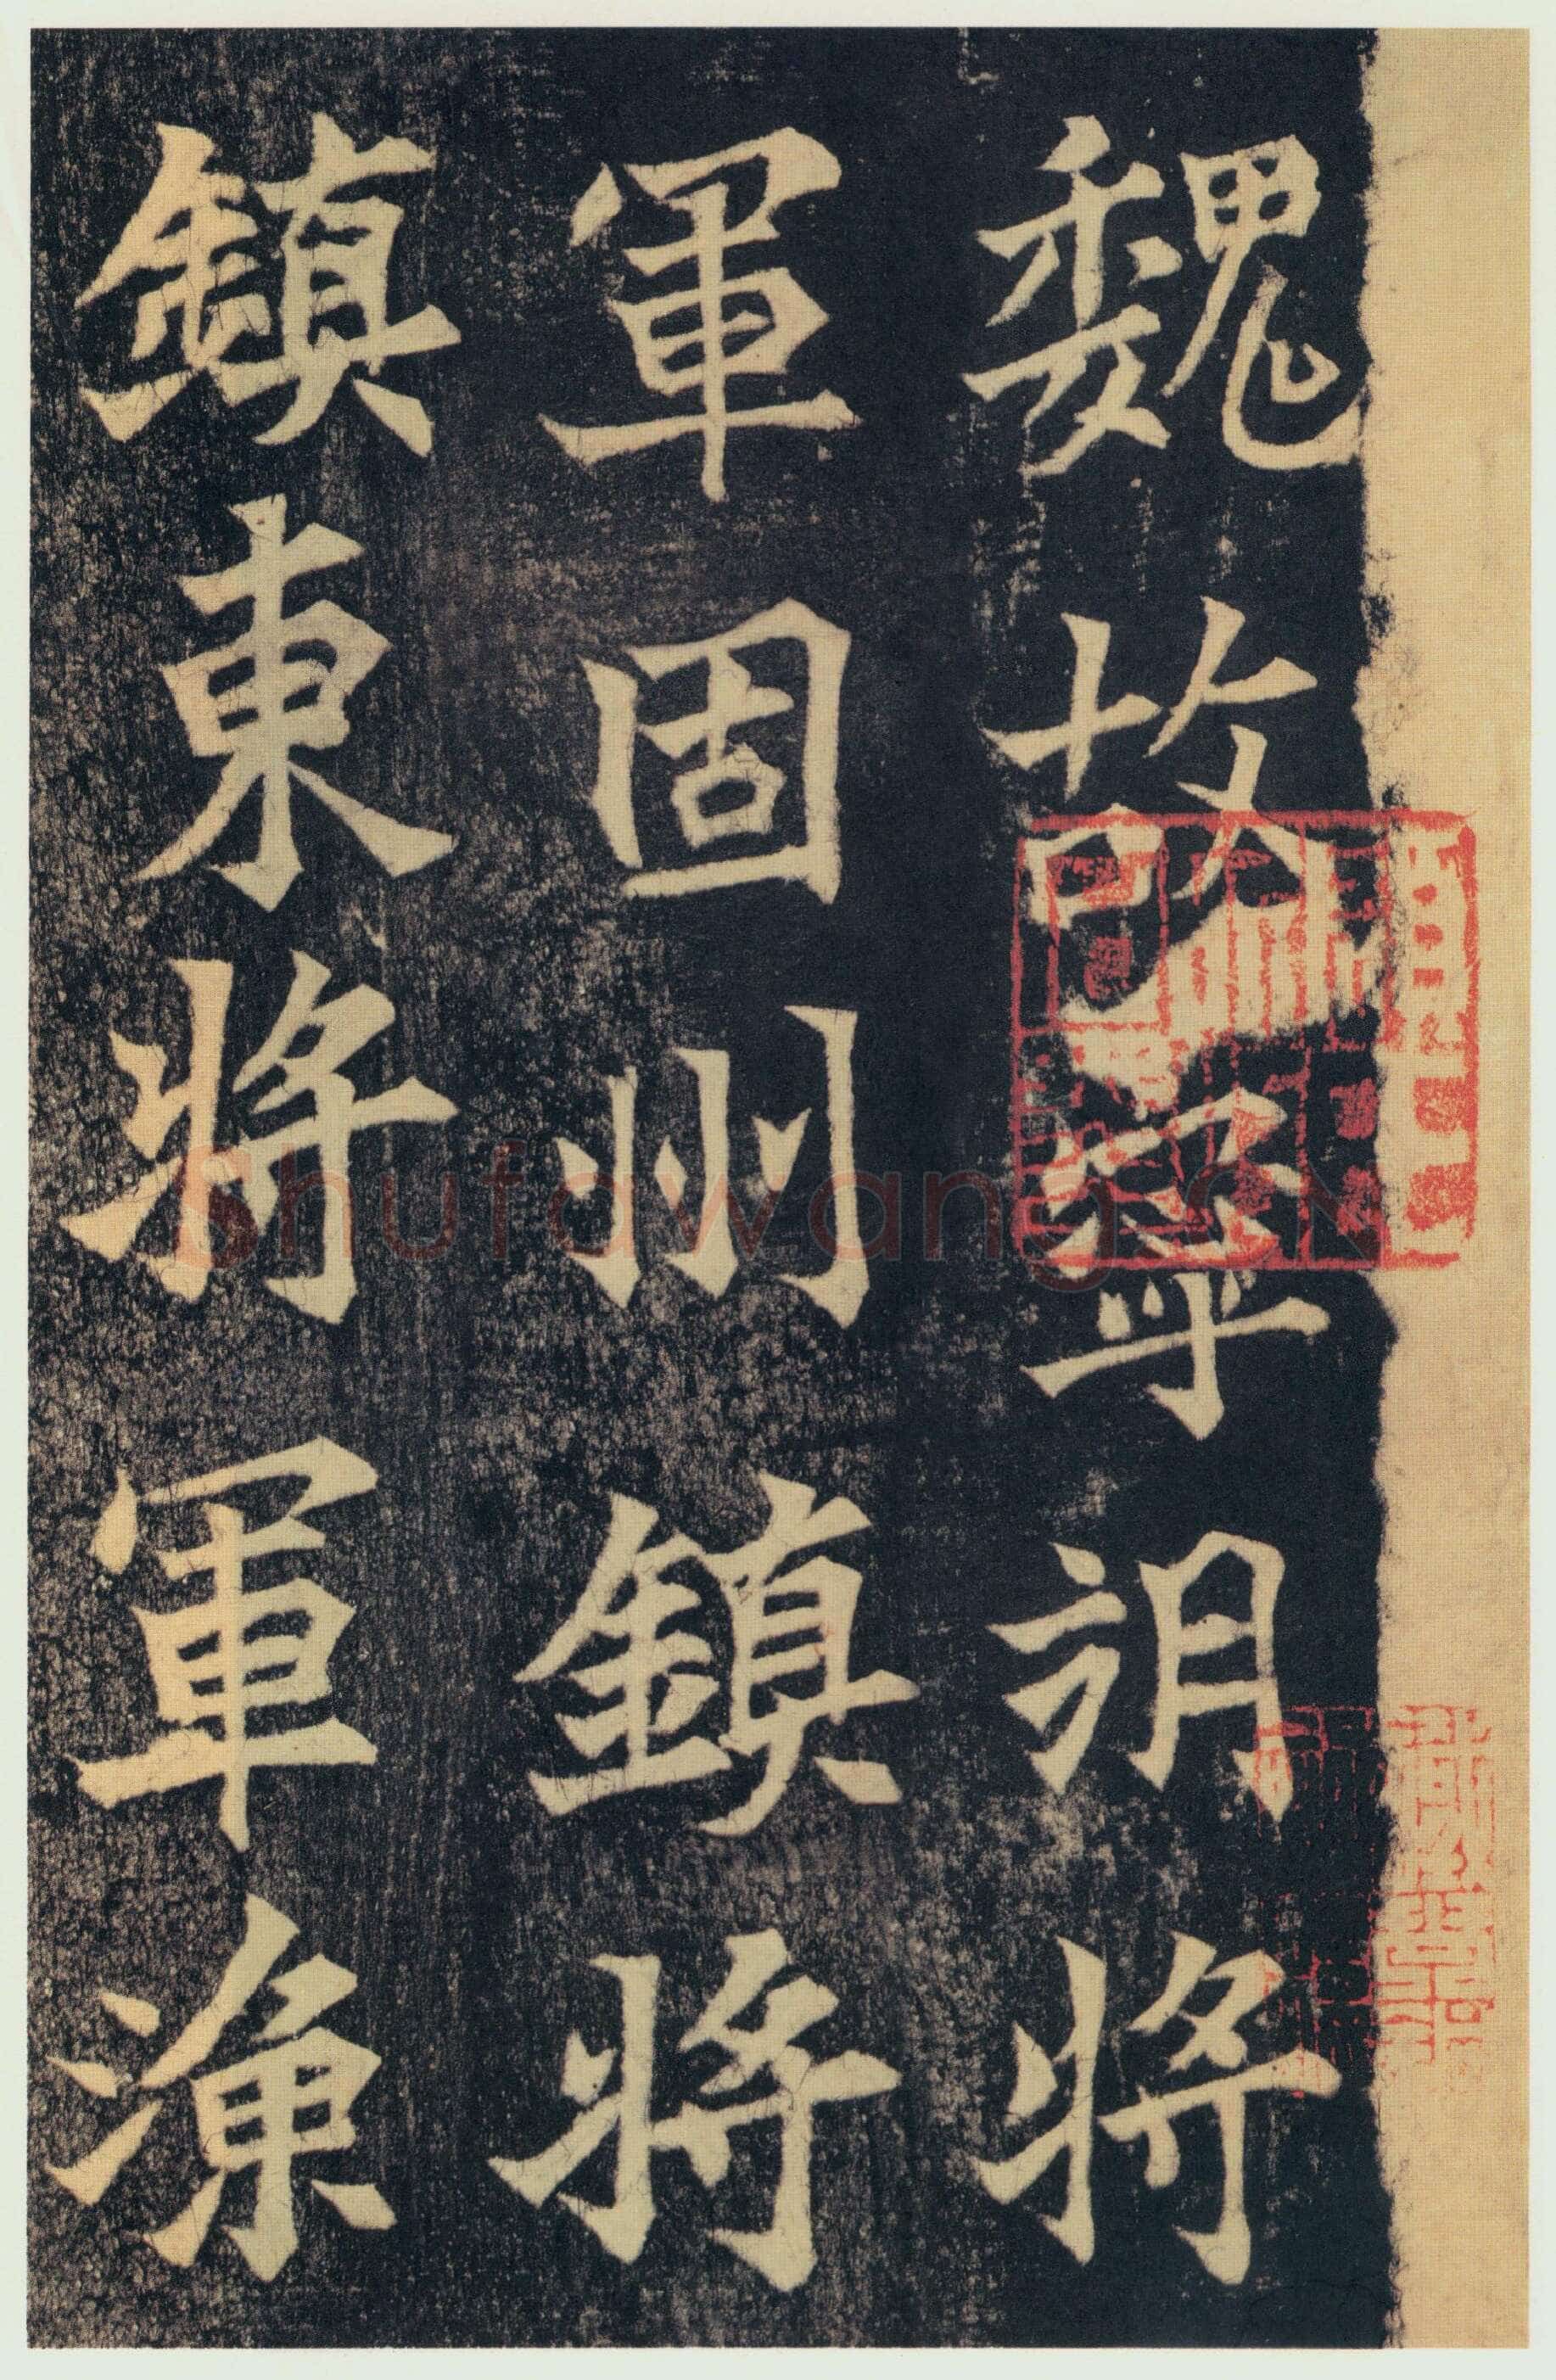 魏故寧朔將
軍固州鎮將
鎮東將軍漁
shufawang.CN